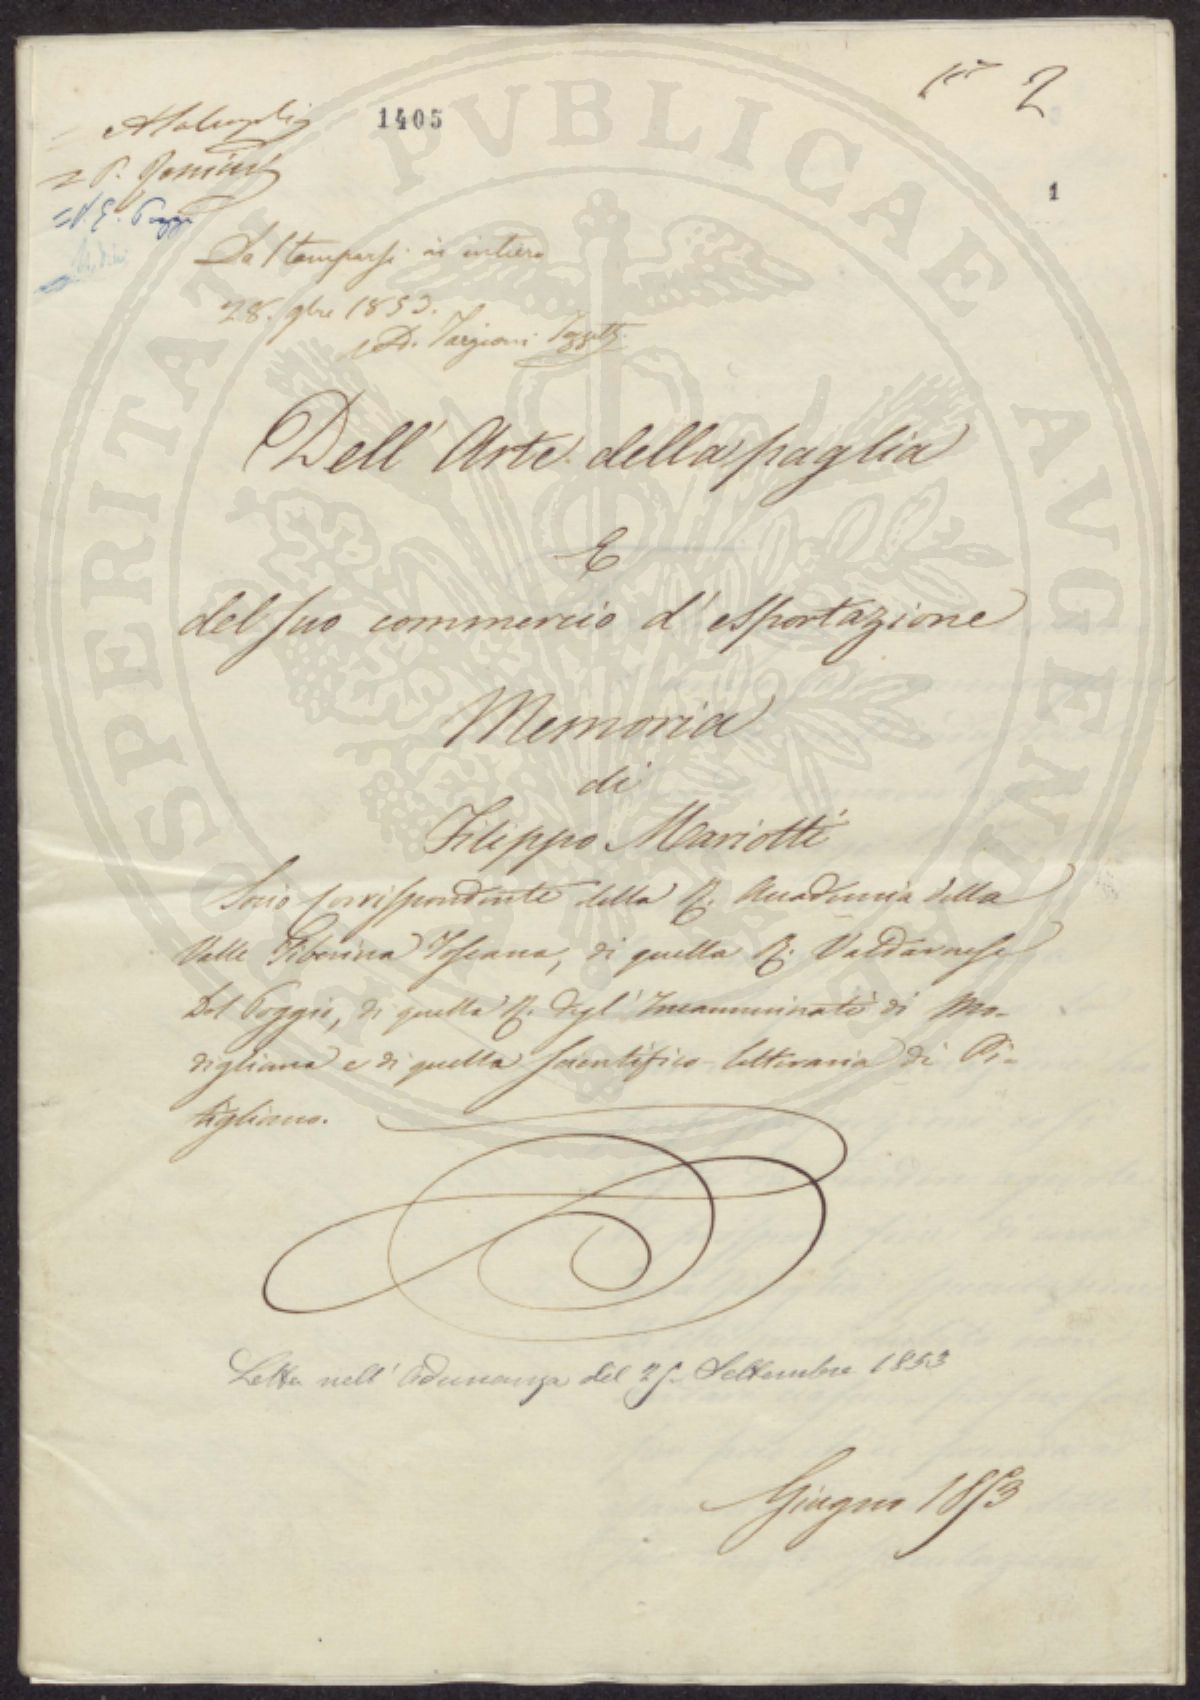 1405
2
1
P.
Da Stamparsi in intiero
28. 9bre 1853.
D. Targioni Tozzetti
Dell' Arte della paglia
E
del suo commercio d'esportazione
Memoria
di
Filippo Mariotti
Socio Corrispondente della R. Accademia della
Valle Tiberina Toscana, di quella R. Valdarnese
Del Poggio, di quella R. degl' Incamminati di Mo-
digliana e di quella Scientifico letteraria di Pi-
tigliano.
Letta nell' Adunanza del Settembre 1853
Giugno 1853
PROSPERITATI PVBLICAE AVGENDAE